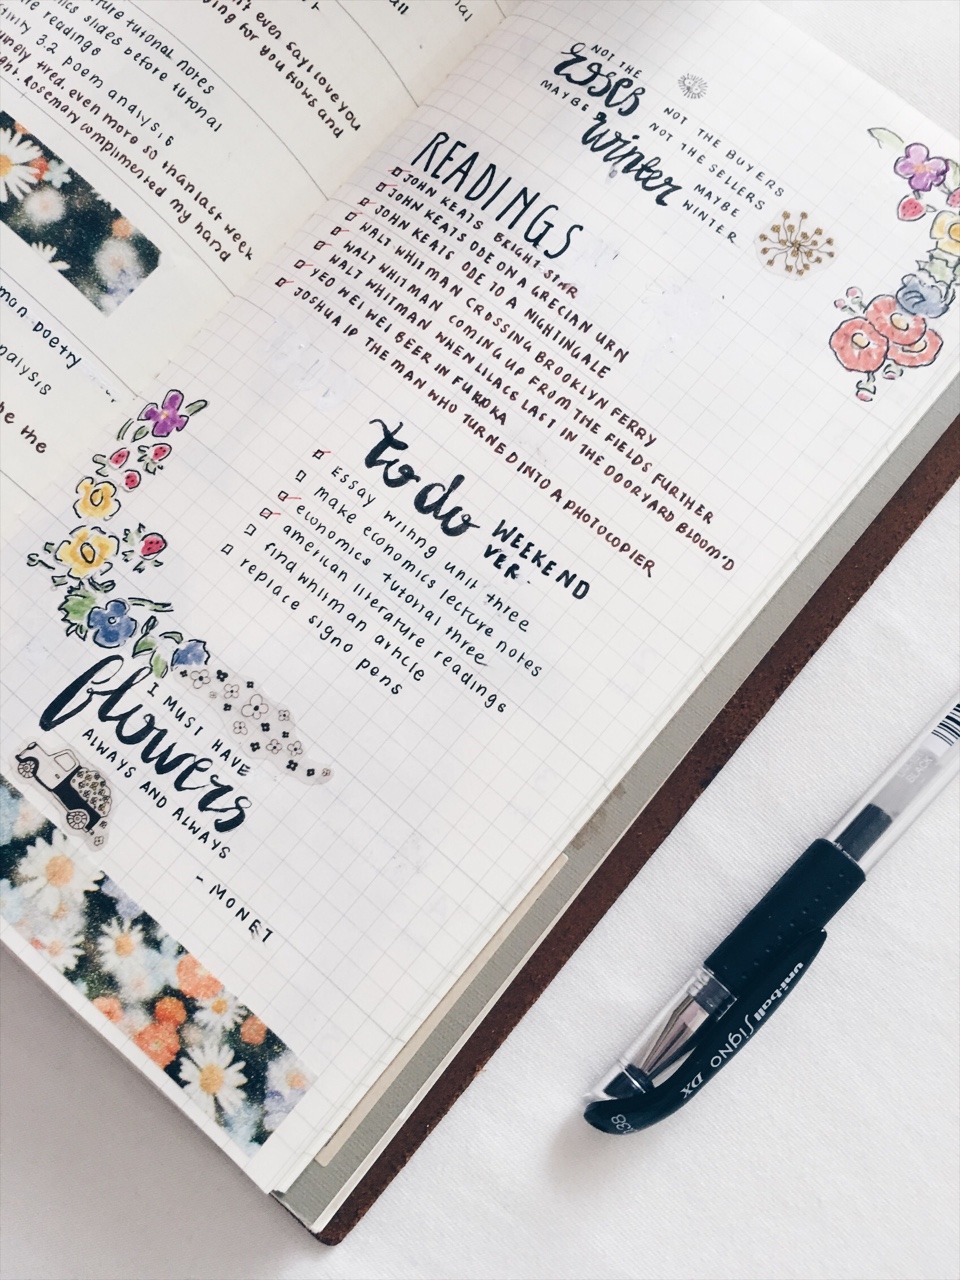 't even say i love you
ing for you flows and
ture tutorial notes
ics slides before tutorial
re readings
tivity 3.2 poem analysis
nuinely tired. even more so than last week
ght. rosemary complimented my hand
man poetry
nalysis
he the
NOT THE
roses
MAYBE
winter
NOT THE BUYERS
NOT THE SELLERS
MAYBE
WINTER
READINGS
JOHN KEATS BRIGHT STAR
JOHN KEATS ODE ON A GRECIAN URN
JOHN KEATS ODE TO A NIGHTINGALE
WALT WHITMAN CROSSING BROOKLYN FERRY
WALT WHITMAN COMING UP FROM THE FIELDS FURTHER
WALT WHITMAN WHEN LILACS LAST IN THE DOORYARD BLOOM'D
YEO WEI WEI BEER IN FUKUOKA
JOSHUA IP THE MAN WHO TURNED INTO A PHOTOCOPIER
to do WEEKEND
VER.
essay writing unit three
make economics lecture notes
economics tutorial three
american literature readings
find whitman article
replace signo pens
I MUST HAVE
flowers
ALWAYS AND ALWAYS
- MONET
uni-ball Signo DX